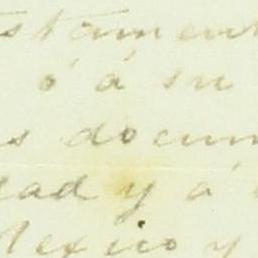 stament
ó á su
s docum
dad y á
Mexico y